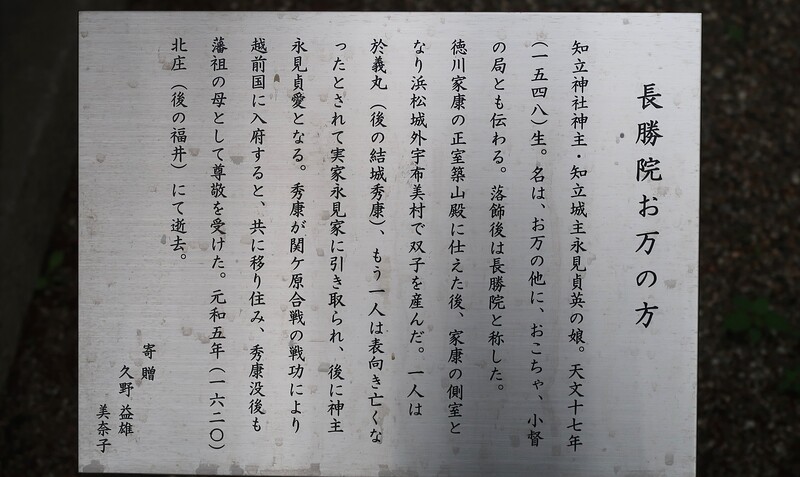 長勝院お万の方
知立神社神主・知立城主永見貞英の娘。天文十七年
（一五四八）生。名は、お万の他に、おこちゃ、小督
の局とも伝わる。落飾後は長勝院と称した。
徳川家康の正室築山殿に仕えた後、家康の側室と
なり浜松城外宇布美村で双子を産んだ。一人は
於義丸（後の結城秀康）、もう一人は表向き亡くな
ったとされて実家永見家に引き取られ、後に神主
永見貞愛となる。秀康が関ケ原合戦の戦功により
越前国に入府すると、共に移り住み、秀康没後も
藩祖の母として尊敬を受けた。元和五年（一六二〇）
北庄（後の福井）にて逝去。
寄贈
久野 益雄
美奈子